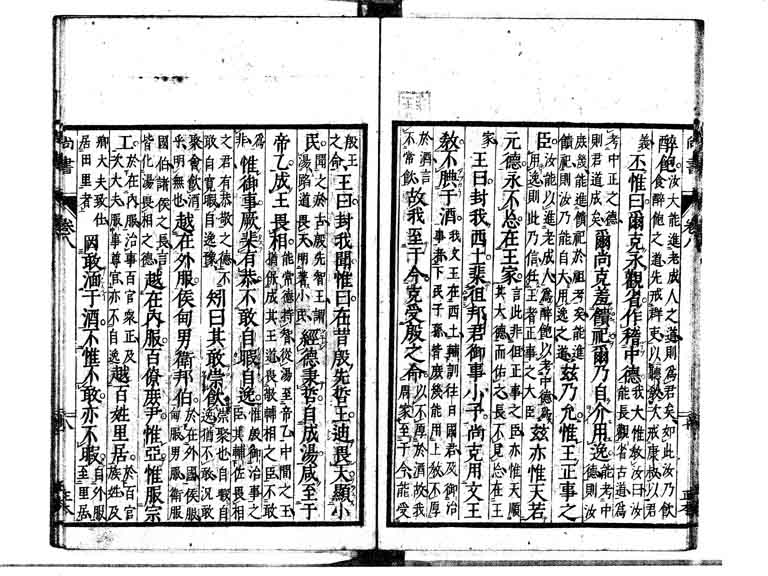 醉飽。汝大能進老成人之道則為君矣如此汝乃飲
食醉飽之道先戒群吏以聽教次戒康叔以君
義丕惟曰爾克永觀省作稽中德我大惟教汝曰汝
能長觀省古道為
考中正之德
則君道成矣爾尚克羞饋祀爾乃自介用逸能考中
德則汝
庶幾能進饋祀於祖考矣能進
饋祀則汝乃能自大用逸之道茲乃允惟王正事之
臣汝能以進老成人為醉飽以考中德為
用逸則此乃信任王者正事之大臣茲亦惟天若
元德永不忘在王家言此非但正事之臣亦惟天順
其大德而佑之長不見忘在王
家王曰封我西土棐徂邦君御事小子尚克用文王
教不腆于酒我文王在西土輔訓往日國君及御治
事者下民子孫皆庶幾能用上教不厚
於酒言
不常飲故我至于今克受殷之命以不厚於酒故我
周家至于今能受
殷王
之命王曰封我聞惟曰在昔殷先哲王迪畏天顯小
民聞之於古殷先智王謂
湯蹈道畏天明著小民經德秉哲自成湯咸至于
帝乙成王畏相能常德持智從湯至帝乙中間之王
猶保成其王道畏敬輔相之臣不敢
為
非惟御事厥棐有恭不敢自暇自逸惟殷御治事之
臣其輔佐畏相
之君有恭敬之德不
敢自寬暇自逸豫矧曰其敢崇飲崇聚也自暇自
逸猶不敢況敢
聚會飲酒
乎明無也越在外服侯甸男衛邦伯於在外國侯服
甸服男服衛服
國伯諸侯之長言
皆化湯畏相之德越在內服百僚庶尹惟亞惟服宗
工於在內服治事百官眾正及
次大夫服事尊官亦不自逸越百姓里居於百官
族姓及
卿大夫致仕
居田里者罔敢湎于酒不惟不敢亦不暇自外服
至里居
尚書
卷八
八